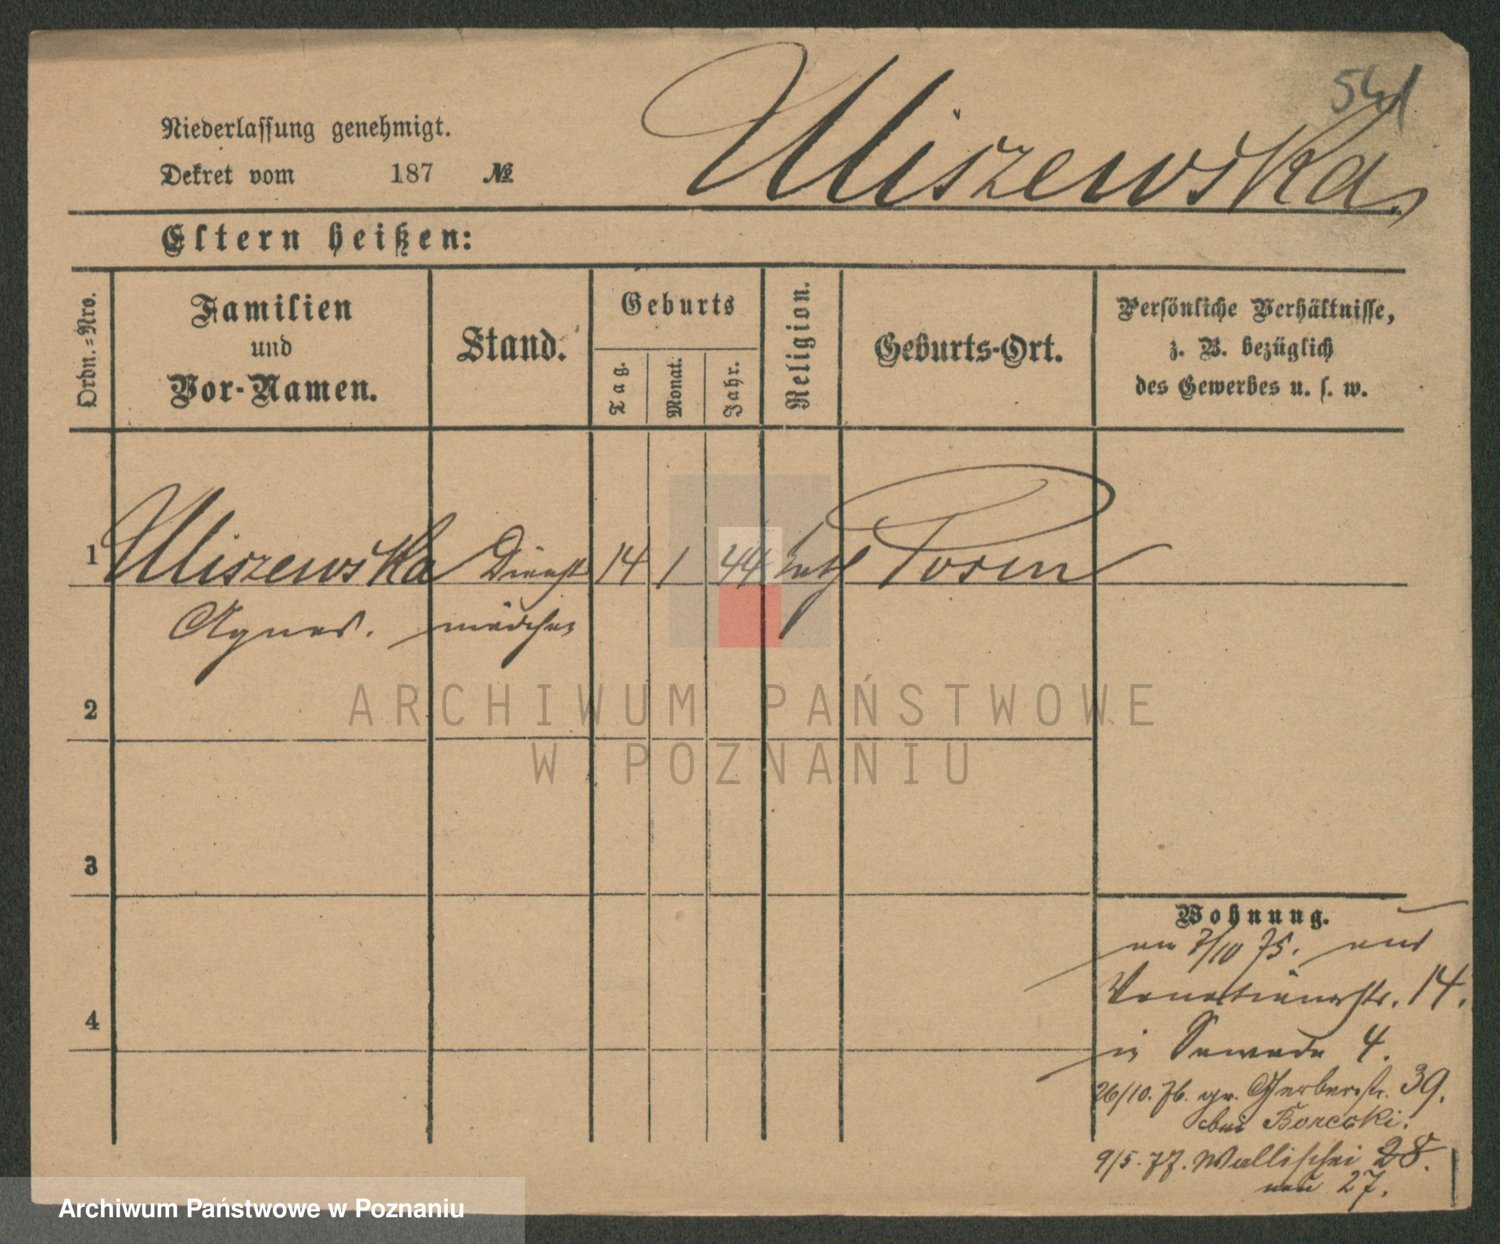 541
Uliszewska
Niederlassung genehmigt.
Dekret vom 187 №
Eltern heißen:
Ordn.=Nro.
Familien
und
Vor-Namen.
Stand.
Geburts
Tag.
Monat.
Jahr.
Religion.
Geburts-Ort.
Persönliche Verhältnisse,
z. B. bezüglich
des Gewerbes u. s. w.
1 Uliszewska Dienst 14 1 44 kath Posen
Agnes. mädchen
2
3
4
Wohnung.
am 7/10 75. aus
Venetianerstr. 14.
in Sawade 4.
26/10. 76. gr. Gerberstr. 39.
bei Borecki.
9/5. 77. Wallischei 28.
neu 27.
ARCHIWUM PAŃSTWOWE
W POZNANIU
Archiwum Państwowe w Poznaniu